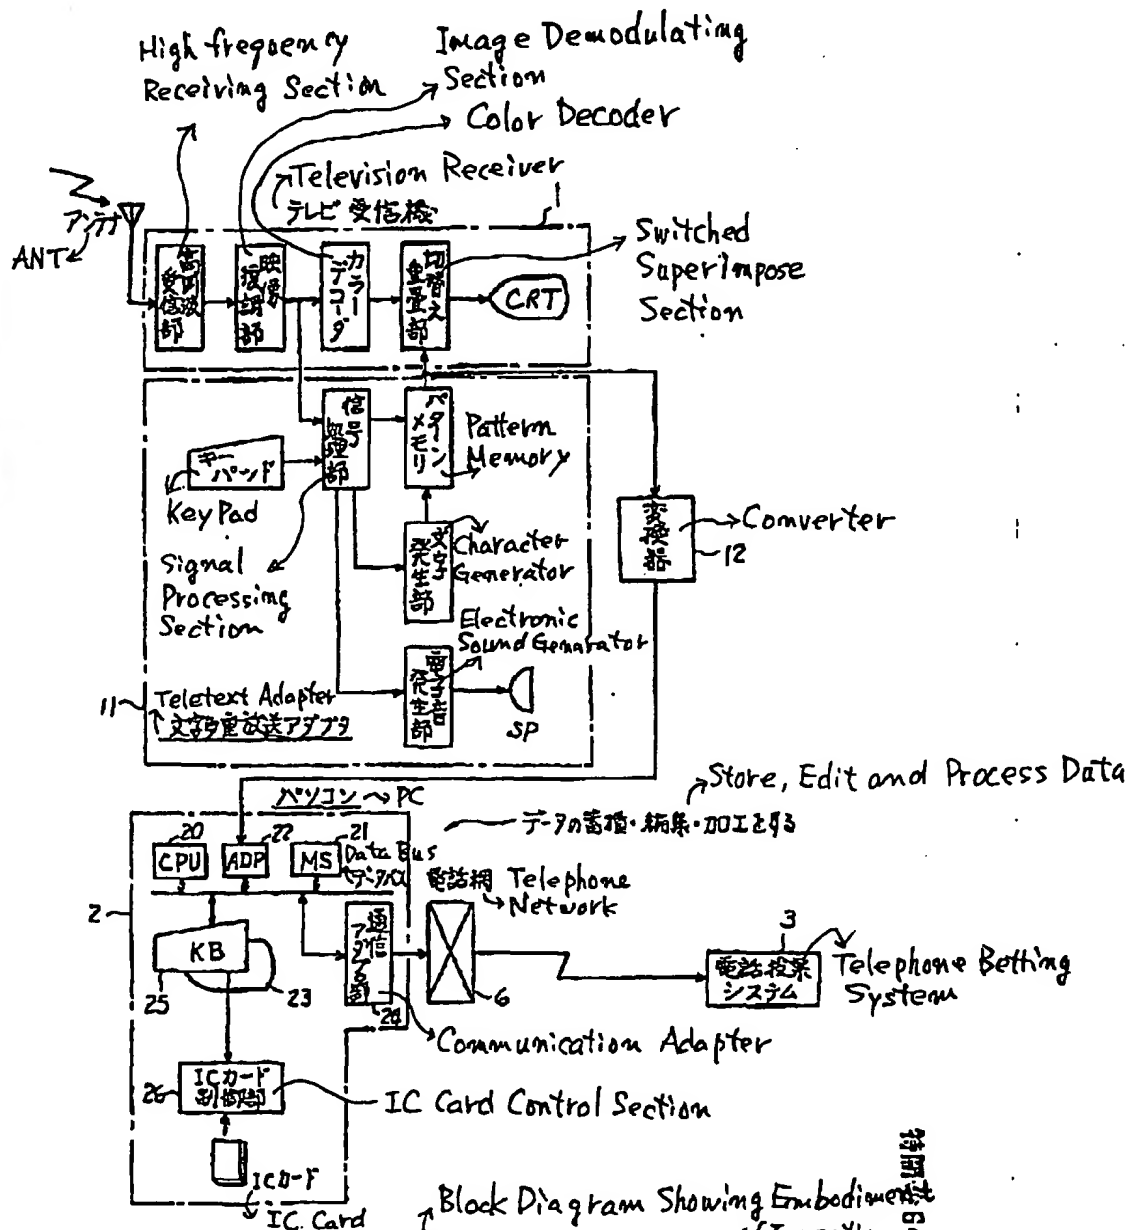 High frequency
Receiving Section
Image Demodulating
Section
Color Decoder
Television Receiver
テレビ受信機
1
アンテナ
ANT
高周波
受信部
映像
復調部
カラー
デコーダ
切替え
重畳部
CRT
Switched
Superimpose
Section
信号
処理部
パターン
メモリ
Pattern
Memory
キー
パッド
Key Pad
Signal
Processing
Section
文字
発生部
Character
Generator
変換器
Converter
12
Electronic
Sound Genarator
電子音
発生部
SP
11
Teletext Adapter
文字多重放送アダプタ
パソコン
PC
Store, Edit and Process Data
データの蓄積・編集・加工をする
20
22
21
CPU
ADP
MS
Data Bus
データバス
電話網
Telephone
Network
2
KB
25
23
通信
アダプタ部
24
6
3
電話投票
システム
Telephone Betting
System
Communication Adapter
26
ICカード
制御部
IC Card Control Section
ICカード
IC. Card
Block Diagram Showing Embodiment